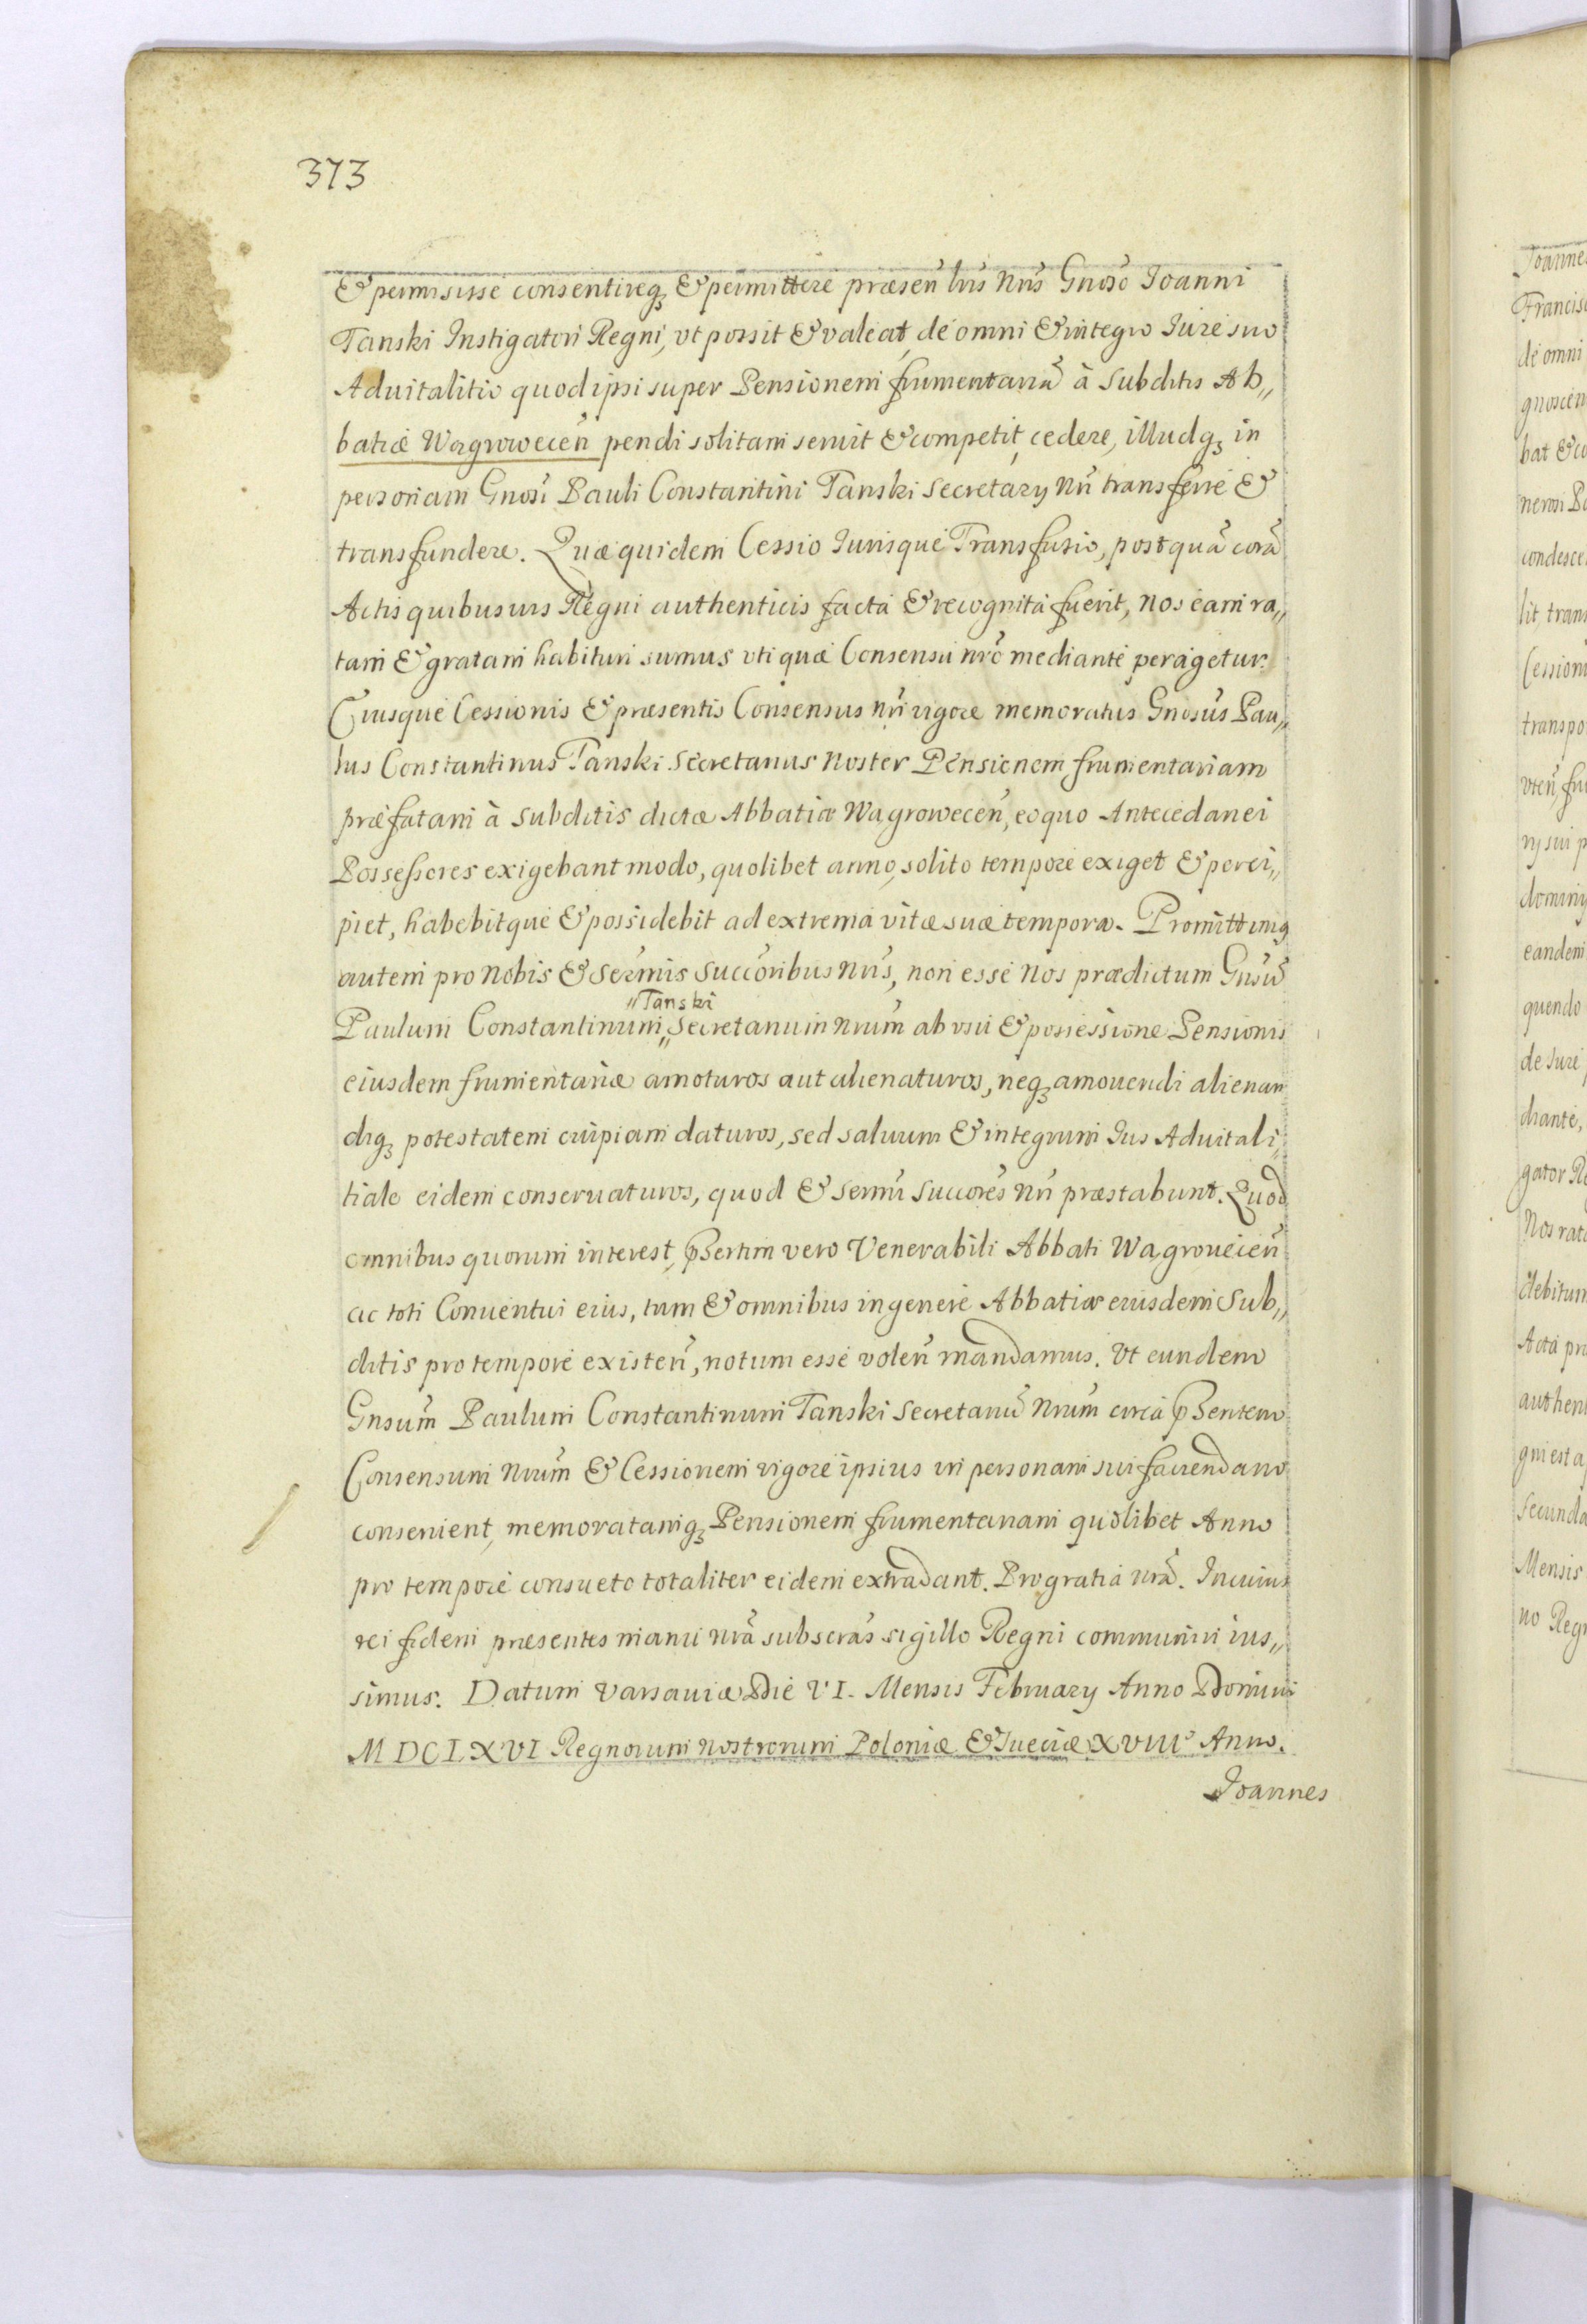 373
& permisisse consentireq₃ & permittere præseñ lris nr̃is Gnoso Joanni
Tanski Instigatori Regni, vt possit & valeat, de omni & integro Jure suo
Aduitalitio quod ipsi super Pensionem frumentariã à subditis Ab,,
batiæ Wągroweceñ pendi solitam seruit & competit, cedere, illudq₃ in
personam Gnosi Pauli Constantini Tanski Secretary Nr̃i transferre &
transfundere. Quæ quidem Cessio Iurisque Transfusio, postquã corã
Actis quibusuis Regni authenticis facta & recognita fuerit, nos eam ra,,
tam & gratam habituri sumus vti quæ Consensu nr̃o mediante peragetur.
Cuiusque Cessionis & præsentis Consensus nr̃i vigore memoratus Gnosus Pau,,
lus Constantinus Tanski Secretarius Noster Pensionem frumentariam
præfatam à subditis dictæ Abbatiæ Wagroweceñ, eo quo Antecedanei
Possessores exigebant modo, quolibet anno, solito tempore exiget & perci,,
piet, habebitque & possidebit ad extrema vitæ suæ tempora. Promittimq
autem pro Nobis & Serm̃is Succoribus Nr̃is, non esse Nos prædictum Gnsũ
,,Tanski
Paulum Constantinum,, Secretarium Nrũm ab vsu & possessione Pensionis
eiusdem frumentariæ amoturos aut alienaturos, neq₃ amouendi alienan
diq₃ potestatem cuipiam daturos, sed saluum & integrum Ius Aduitali,,
tiale eidem conseruaturos, quod & Serm̃i Succores Nr̃i præstabunt. Quod
omnibus quorum interest, p̃sertim vero Venerabili Abbati Wagroueceñ
ac toti Conuentui eius, tum & omnibus in genere Abbatiæ eiusdem Sub,,
ditis pro tempore existeñ, notum esse voleñ mandamus. Vt eundem
Gnsum̃ Paulum Constantinum Tanski Secretariũ Nrum̃ circa p̃sentem
Consensum Nrum̃ & Cessionem vigore ipsius in personam sui faciendam
conseruent, memoratamq₃ Pensionem frumentariam quolibet Anno
pro tempore consueto totaliter eidem extradant. Pro gratia nrã. In cuius
rei fidem præsentes manu nrã subscras sigillo Regni communiri ius,,
simus. Datum Varsauiæ Die VI. Mensis February Anno Domini
MDCLXVI Regnorum nostrorum Poloniæ & Sueciæ XVIII° Anno.
Joannes